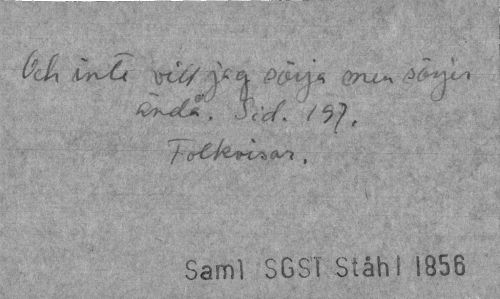 Och inte vill jag sörja men sörjer
ändå. Sid. 197.
Folkvisor.
Saml SGST Ståhl 1856